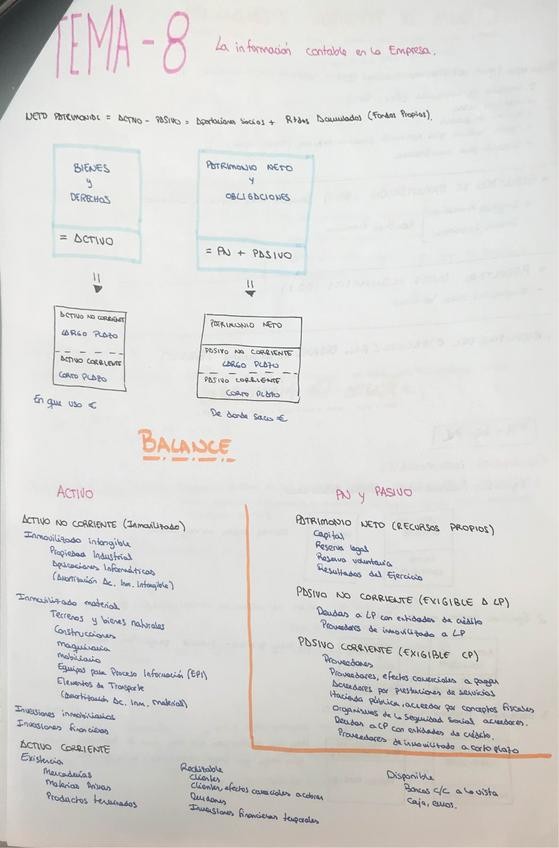 TEMA-8
La información contable en la Empresa.
NETO PATRIMONIAL = ACTIVO - PASIVO = Aportaciones Socios + Rtdos Acumulados (Fondos Propios).
BIENES
y
DERECHOS
= ACTIVO
PATRIMONIO NETO
y
OBLIGACIONES
= PN + PASIVO
ACTIVO NO CORRIENTE
LARGO PLAZO
ACTIVO CORRIENTE
CORTO PLAZO
En que uso €
PATRIMONIO NETO
PASIVO NO CORRIENTE
LARGO PLAZO
PASIVO CORRIENTE
CORTO PLAZO
De donde saco €
BALANCE
ACTIVO
ACTIVO NO CORRIENTE (Inmovilizado)
Inmovilizado intangible
Propiedad Industrial
Aplicaciones Informáticas
(Amortización Ac. Inm. Intangible)
Inmovilizado material
Terrenos y bienes naturales
Construcciones
Maquinaria
Mobiliario
Equipos para Proceso Información (EPI)
Elementos de Transporte
(Amortización Ac. Inm. Material)
Inversiones inmobiliarias
Inversiones financieras
ACTIVO CORRIENTE
Existencia
Mercaderías
Materias Primas
Productos terminados
Realizable
Clientes
Clientes, efectos comerciales a cobrar
Deudores
Inversiones financieras temporales
Disponible
Bancos c/c a la vista
Caja, euros.
PN y PASIVO
PATRIMONIO NETO (RECURSOS PROPIOS)
Capital
Reserva legal
Reserva voluntaria
Resultados del Ejercicio
PASIVO NO CORRIENTE (EXIGIBLE A LP)
Deudas a LP con entidades de crédito
Proveedores de inmovilizado a LP
PASIVO CORRIENTE (EXIGIBLE CP)
Proveedores
Proveedores, efectos comerciales a pagar
Acreedores por prestaciones de servicios
Hacienda pública, acreedor por conceptos fiscales
Organismos de la Seguridad Social acreedores.
Deudas a CP con entidades de crédito.
Proveedores de inmovilizado a corto plazo